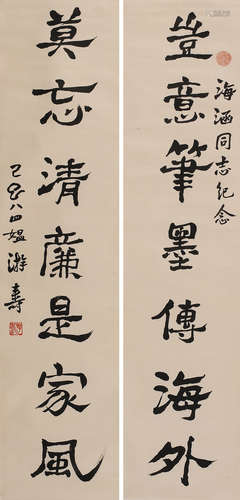 海涵同志纪念
豈意筆墨傳海外
莫忘清廉是家風
八四媪游壽